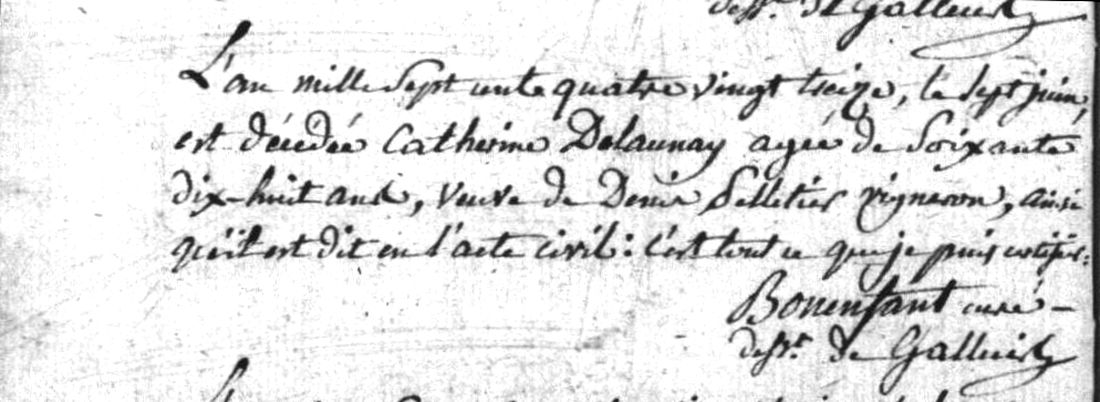 dess.t de Galluis
L'an mille sept cents quatre vingt treize, le sept juin,
est décédée Catherine Delaunay agée de soixante
dix-huit ans, veuve de Denis Pelletier vigneron, ainsi
qu'il est dit en l'acte civil: c'est tout ce que je puis certifier:
Bonenfant curé -
dess.t de Galluis